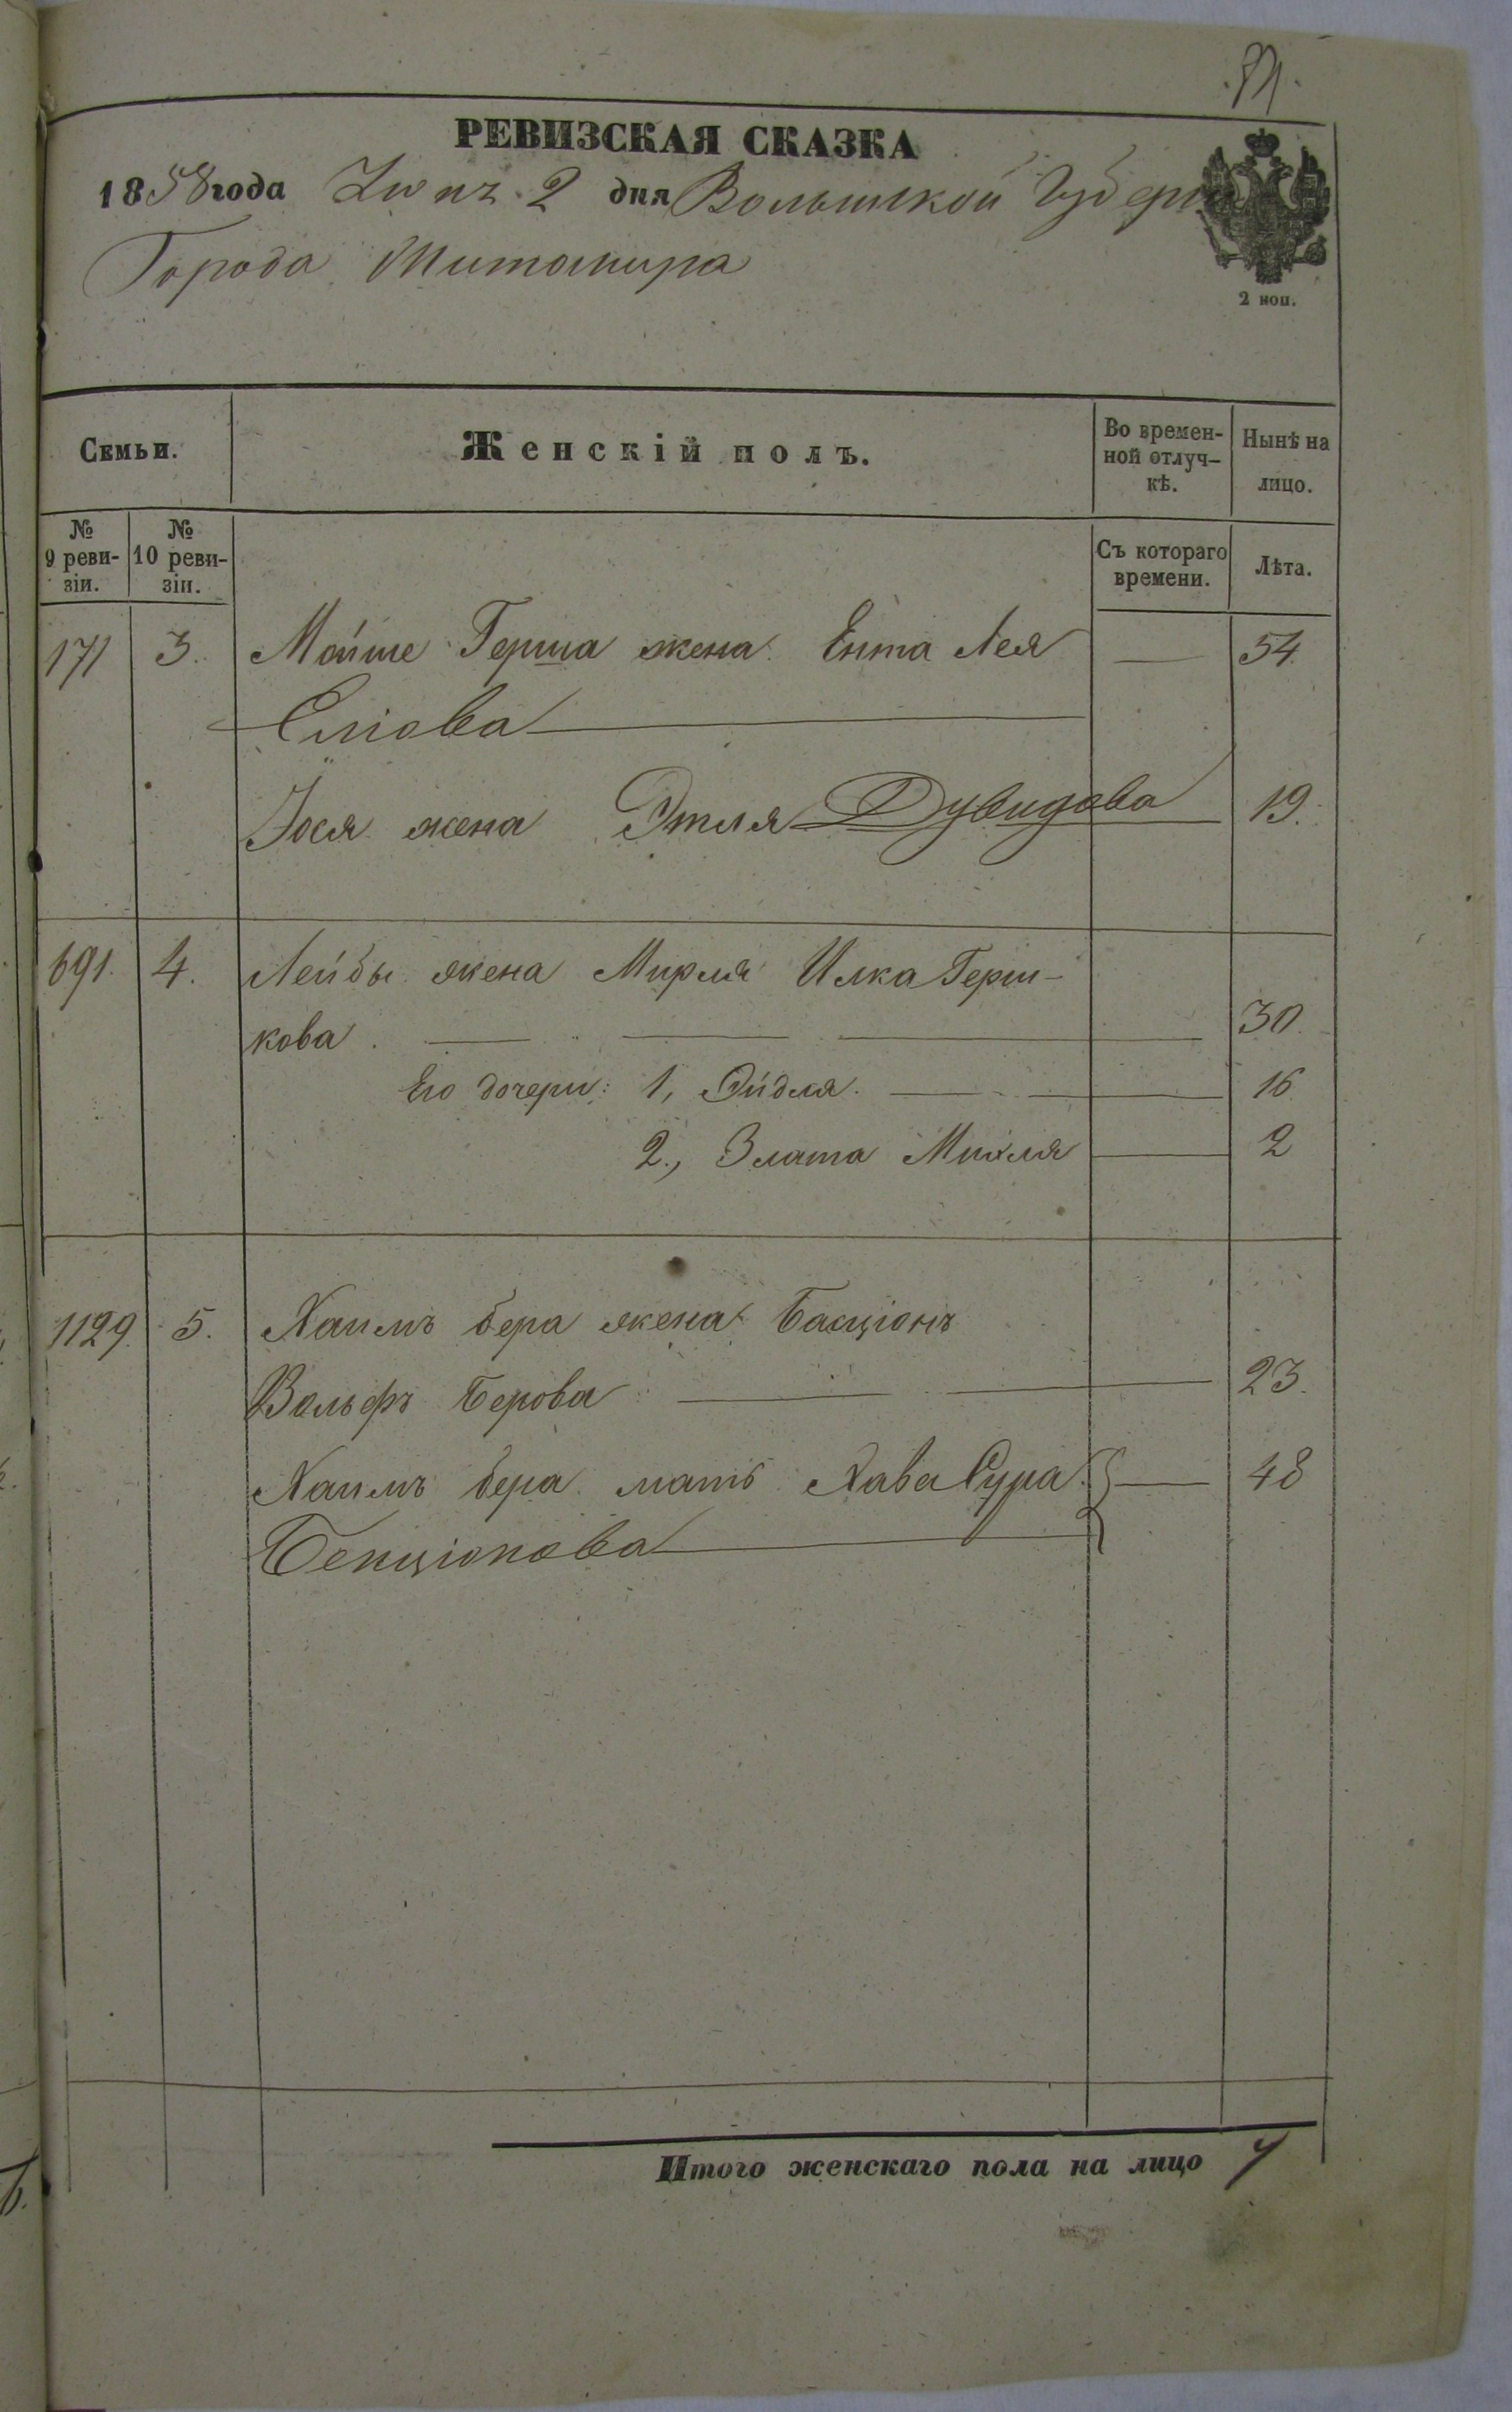 РЕВИЗСКАЯ СКАЗКА
1858 года Іюня 2 дня Волынской Губерніи
Города Житомира
2 коп.
Семьи. Женскій полъ. Во времен-ной отлуч-кѣ. Нынѣ на лицо.
№ 9 реви-зіи. № 10 реви-зіи. Съ котораго времени. Лѣта.
171 3. Мойше Герша жена Ента Лея — 54.
Еліова
Іося жена Этля Дувидова 19.
691. 4. Лейбы жена Мирля Илка Герш-
кова. 30.
Его дочери: 1, Эйдля. 16.
2., Злата Михля 2
1129. 5. Хаимъ бера жена Басціонъ
Вольфъ Берова 23.
Хаимъ бера мать Хава Сура } — 48
Бенціонова
Итого женскаго пола на лицо 7